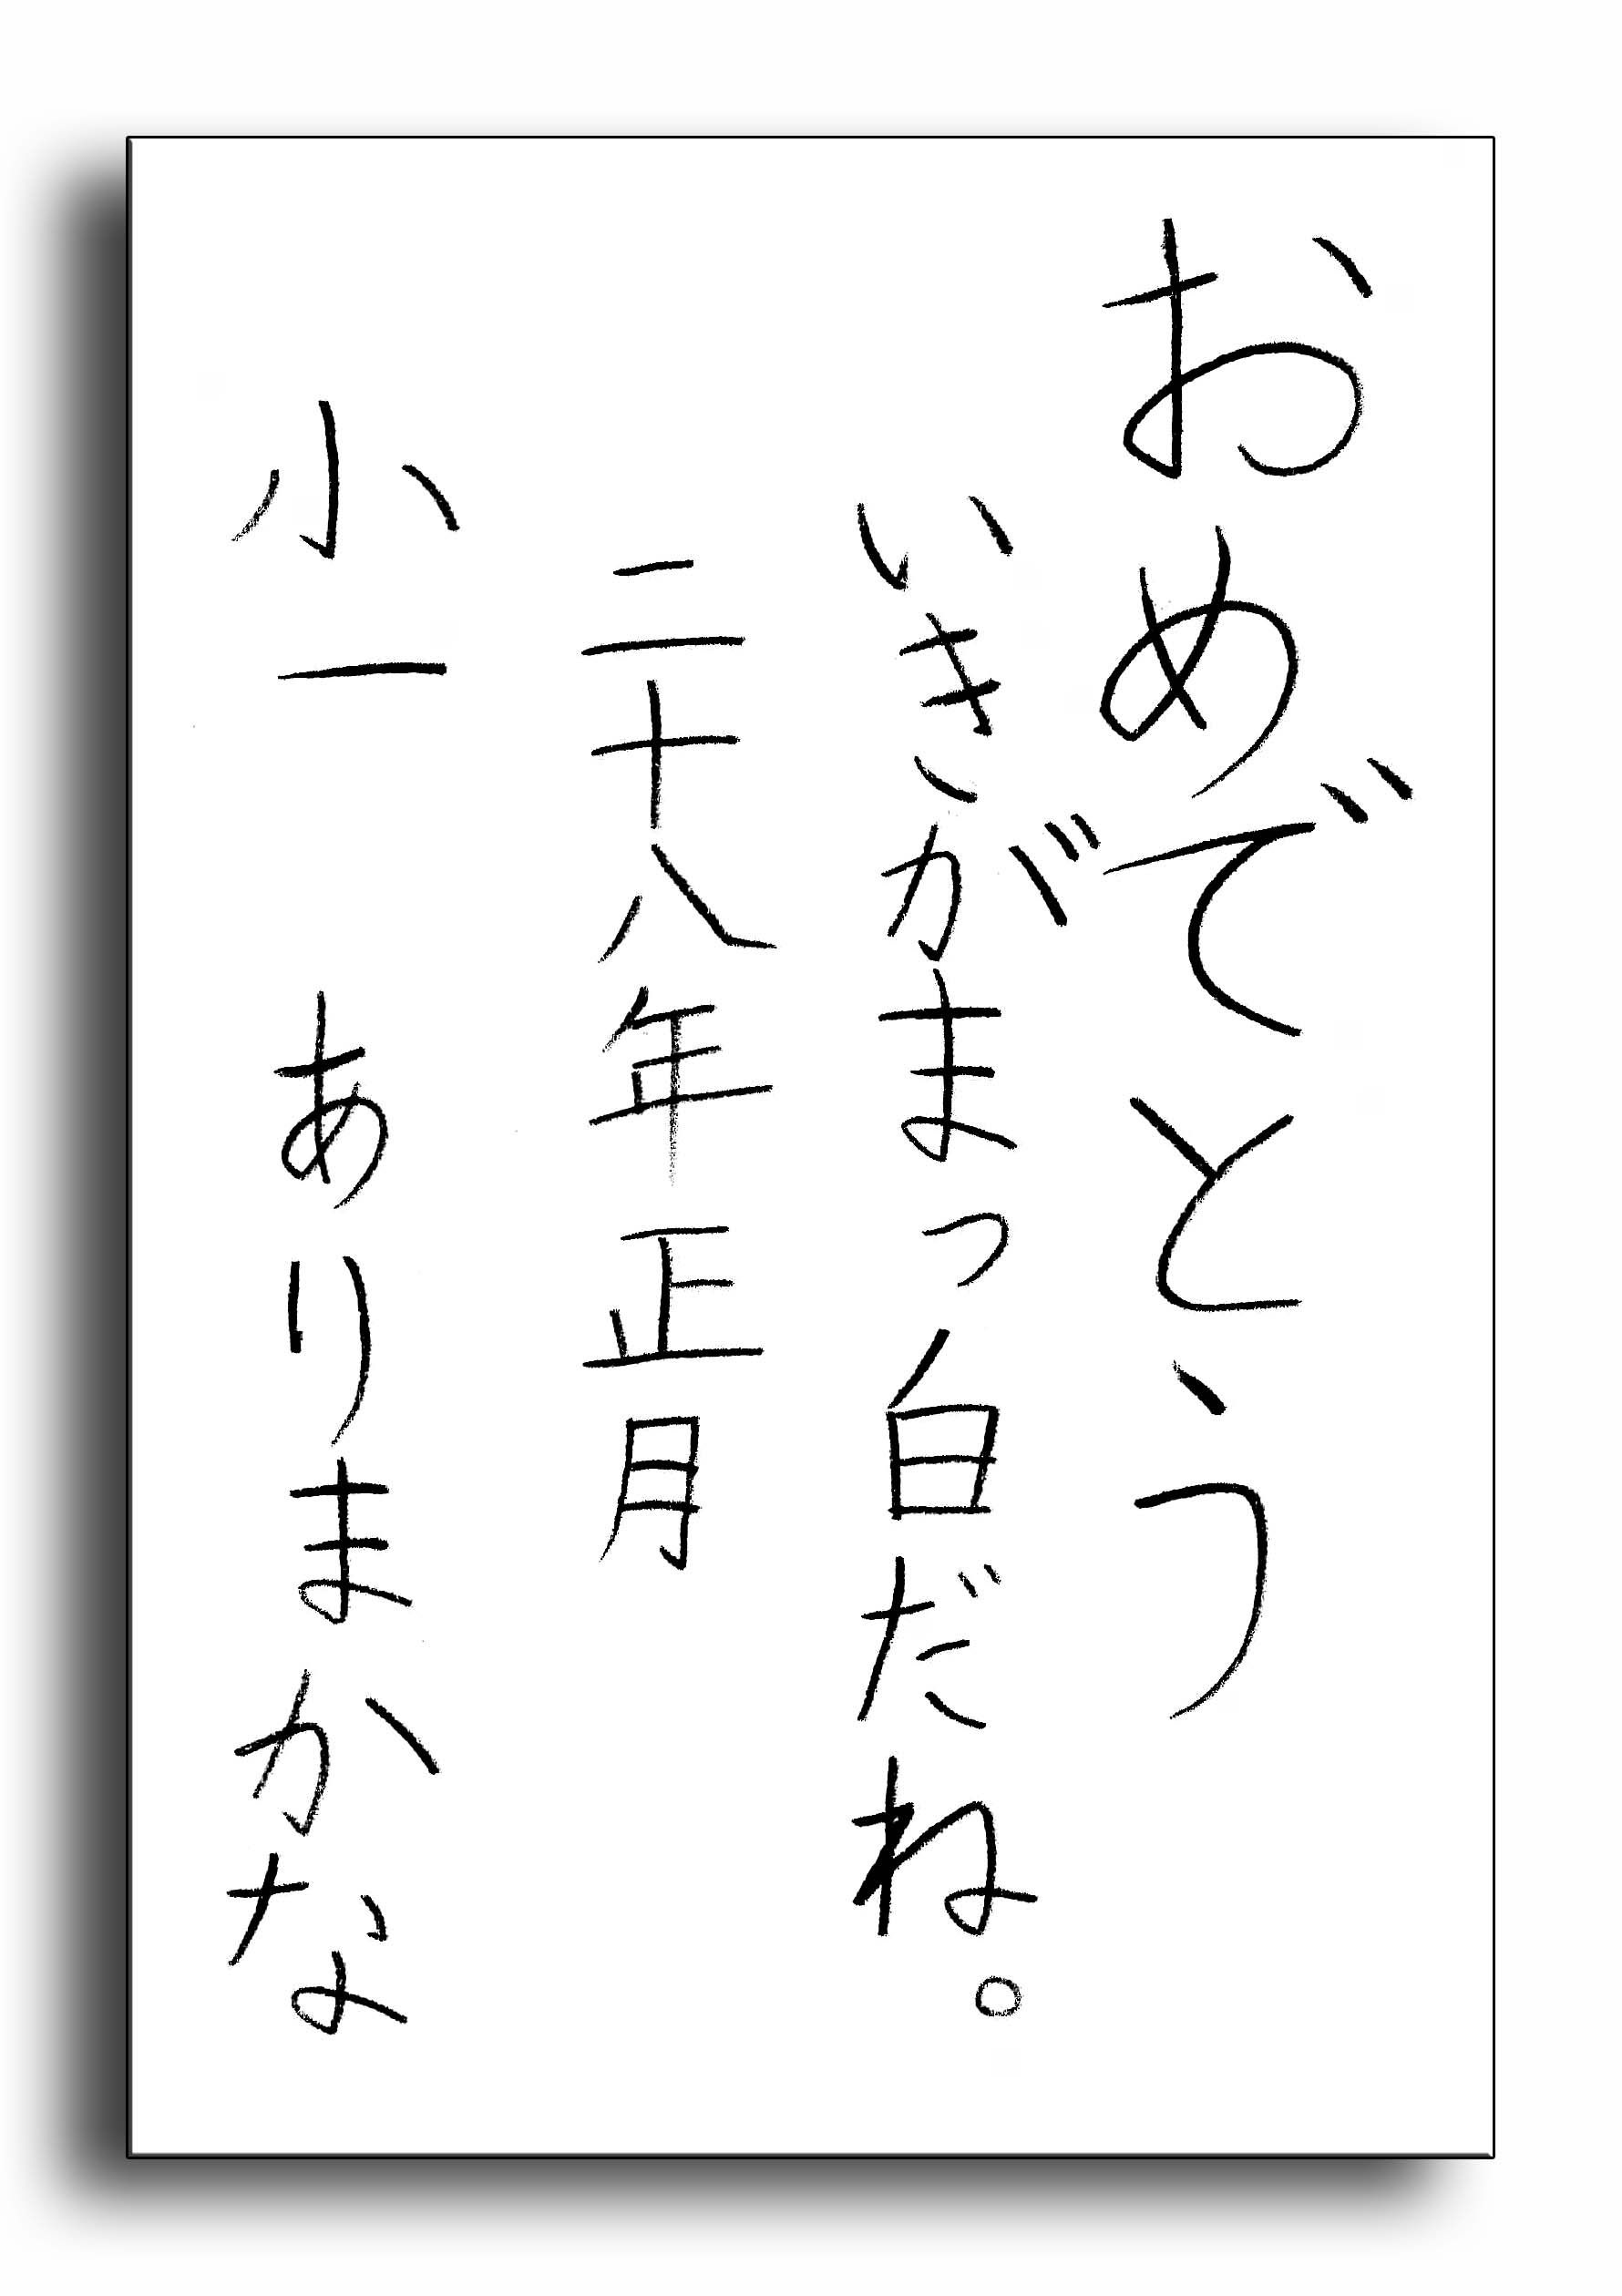 おめでとう
いきがまっ白だね。
二十八年正月
小一 ありまかな